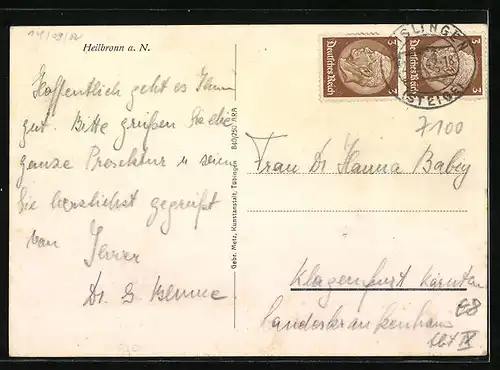 Heilbronn a. N.
Hoffentlich geht es Ihnen
gut. Bitte grüßen Sie die
ganze Prosektur u seien
Sie herzlichst gegrüßt
von Ihrer
Dr. G.
Gebr. Metz, Kunstanstalt, Tübingen
Deutsches Reich
3
Deutsches Reich
3
(STEIGE)
7100
Frau Dr Hanna Babey
Klagenfurt Kärnten
Landeskrankenhaus